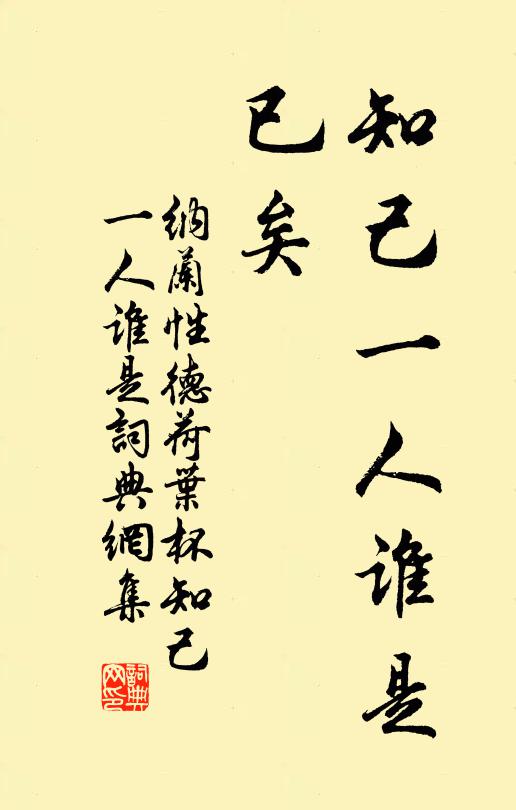 知己一人谁是
已矣
纳蘭性德荷葉杯知己
一人谁是詞典網集
詞典
网印